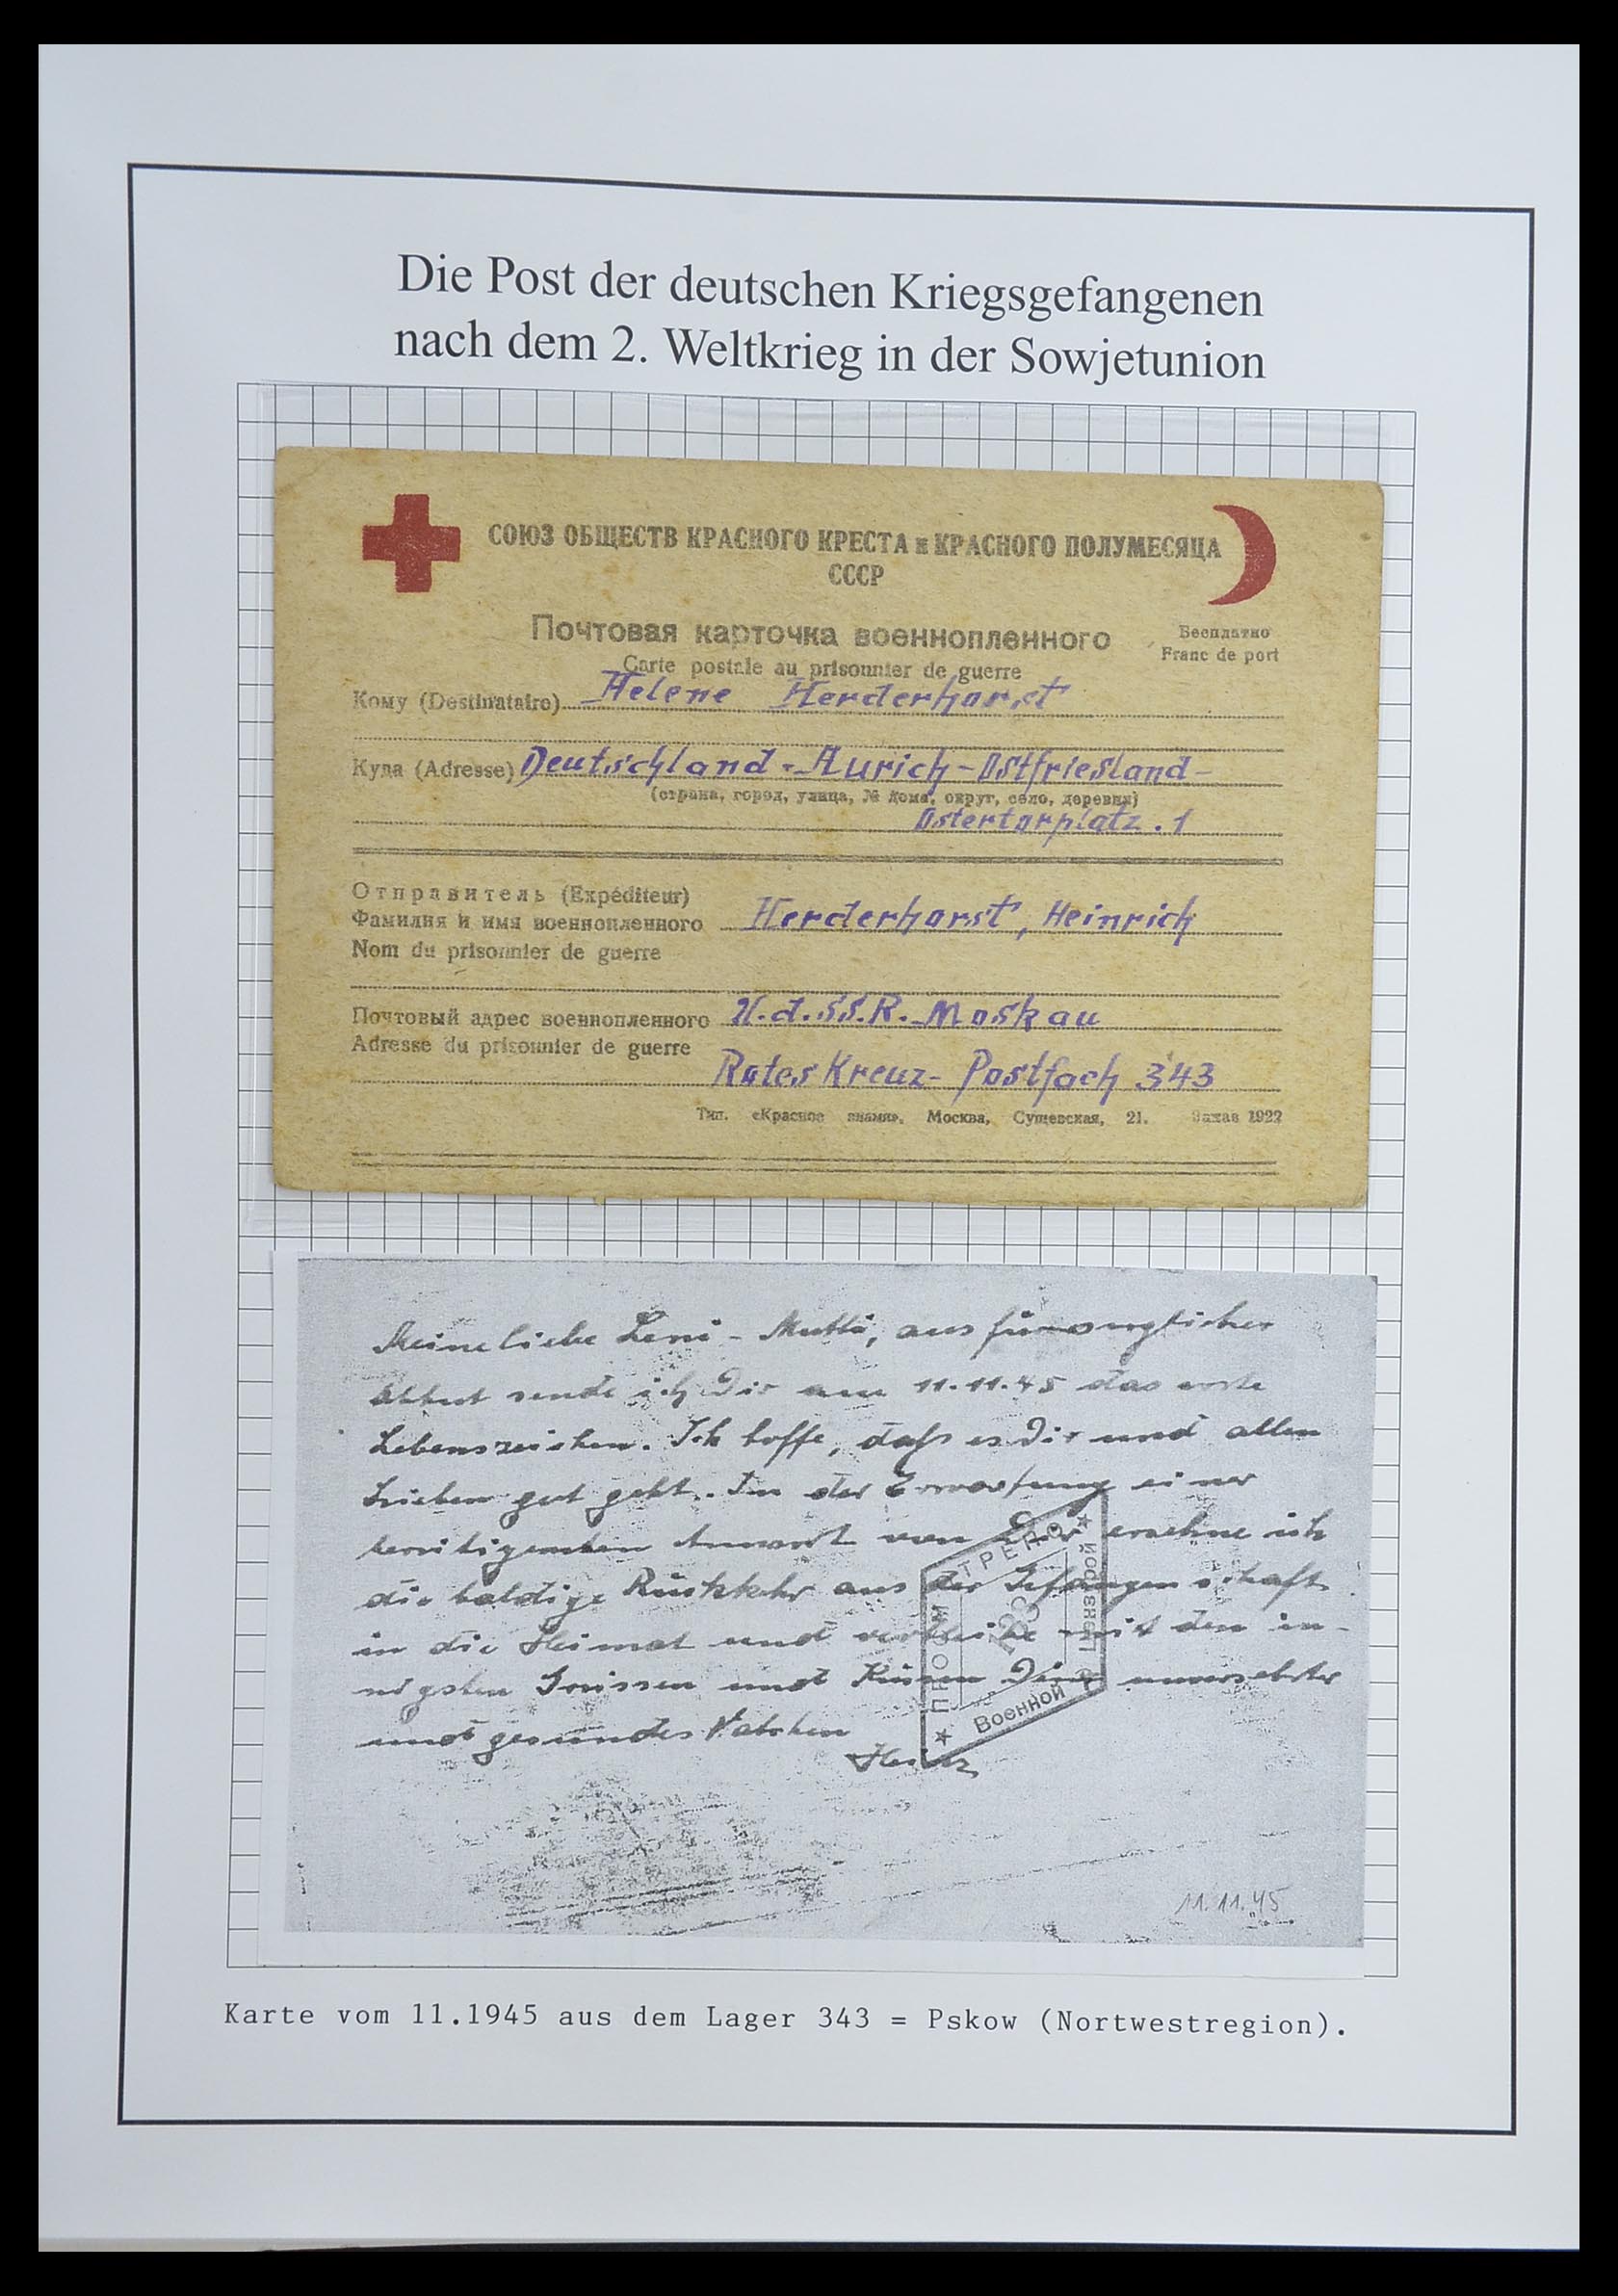 Die Post der deutschen Kriegsgefangenen
nach dem 2. Weltkrieg in der Sowjetunion
СОЮЗ ОБЩЕСТВ КРАСНОГО КРЕСТА и КРАСНОГО ПОЛУМЕСЯЦА
СССР
Почтовая карточка военнопленного
Бесплатно
Carte postale au prisonnier de guerre
Franc de port
Кому (Destinataire) Helene Herderhorst
Куда (Adresse) Deutschland - Aurich - Ostfriesland -
(страна, город, улица, № дома, округ, село, деревня)
Ostertorplatz . 1
Отправитель (Expéditeur)
Фамилия и имя военнопленного Herderhorst, Heinrich
Nom du prisonnier de guerre
Почтовый адрес военнопленного U.d.SS.R. - Moskau
Adresse du prisonnier de guerre
Rotes Kreuz - Postfach 343
Тип. «Красное знамя», Москва, Сущевская, 21. Заказ 1922
Meine liebe Leni - Mutti, aus fürsorglicher
sende ich Dir am 11.11.45 das erste
Lebenszeichen. Ich hoffe, daß es Dir und allen
Lieben gut geht. In der Erwartung einer
Antwort von Dir ersehne ich
die baldige Rückkehr aus der Gefangenschaft
in die Heimat und verbleibe mit den in-
nigsten Grüssen und Küssen Dein unversehrter
und gesundes Vatchen
Heinz
ПРОСМОТРЕНО
Военной Цензурой
11.11.45
Karte vom 11.1945 aus dem Lager 343 = Pskow (Nortwestregion).